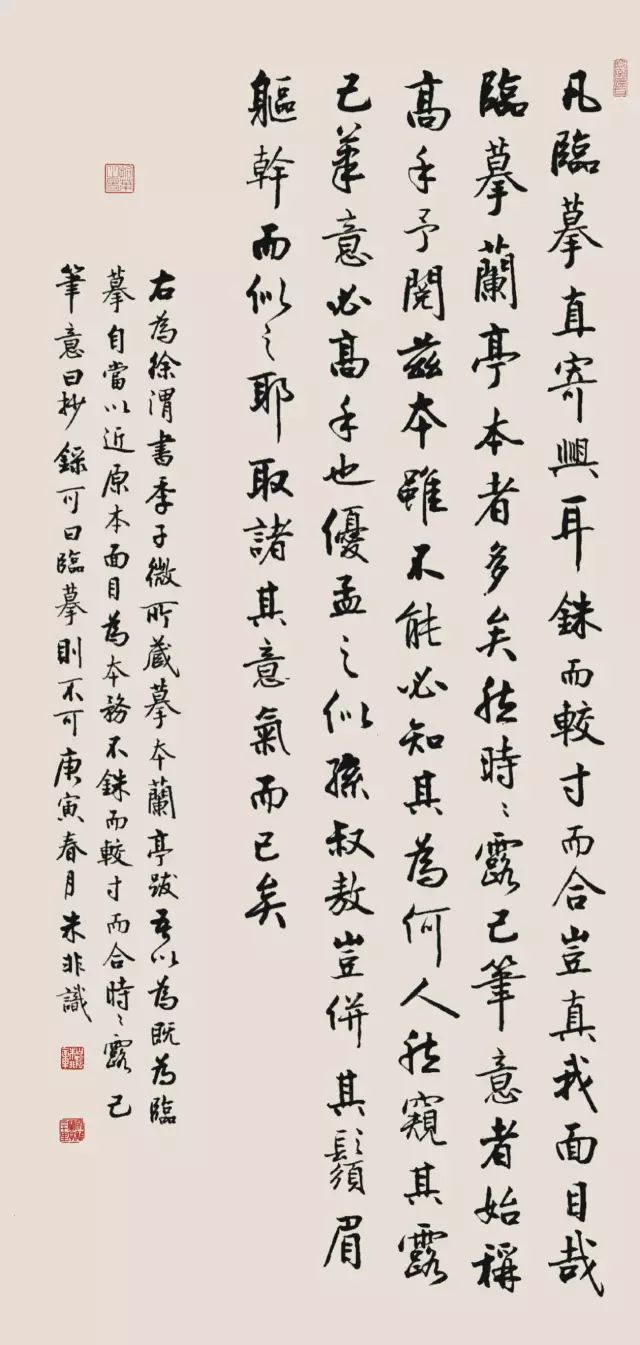 凡臨摹直寄興耳銖而較寸而合豈真我面目哉
臨摹蘭亭本者多矣然時〻露己筆意者始稱
高手予閱茲本雖不能必知其為何人然窺其露
己筆意必高手也優孟之似孫叔敖豈併其鬚眉
軀幹而似之耶取諸其意氣而已矣
右為徐渭書季子微所藏摹本蘭亭跋吾以為既為臨
摹自當以近原本面目為本務不銖而較寸而合時〻露己
筆意曰抄錄可曰臨摹則不可庚寅春月朱非識